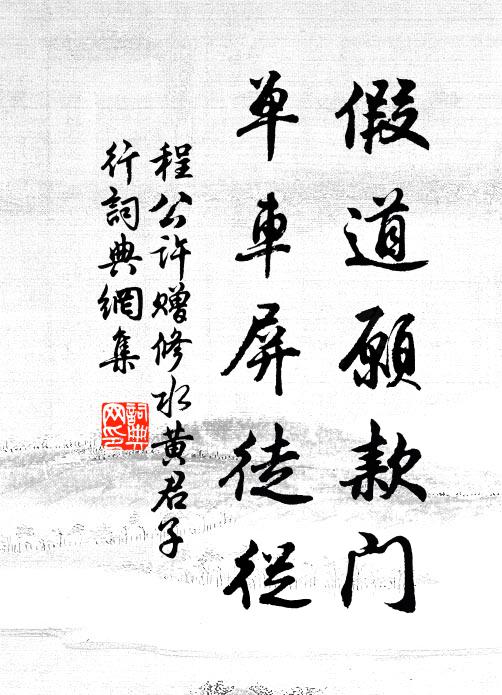 假道願款門
单車屏徒從
程公許赠修水黄君子
行詞典網集
詞典网印